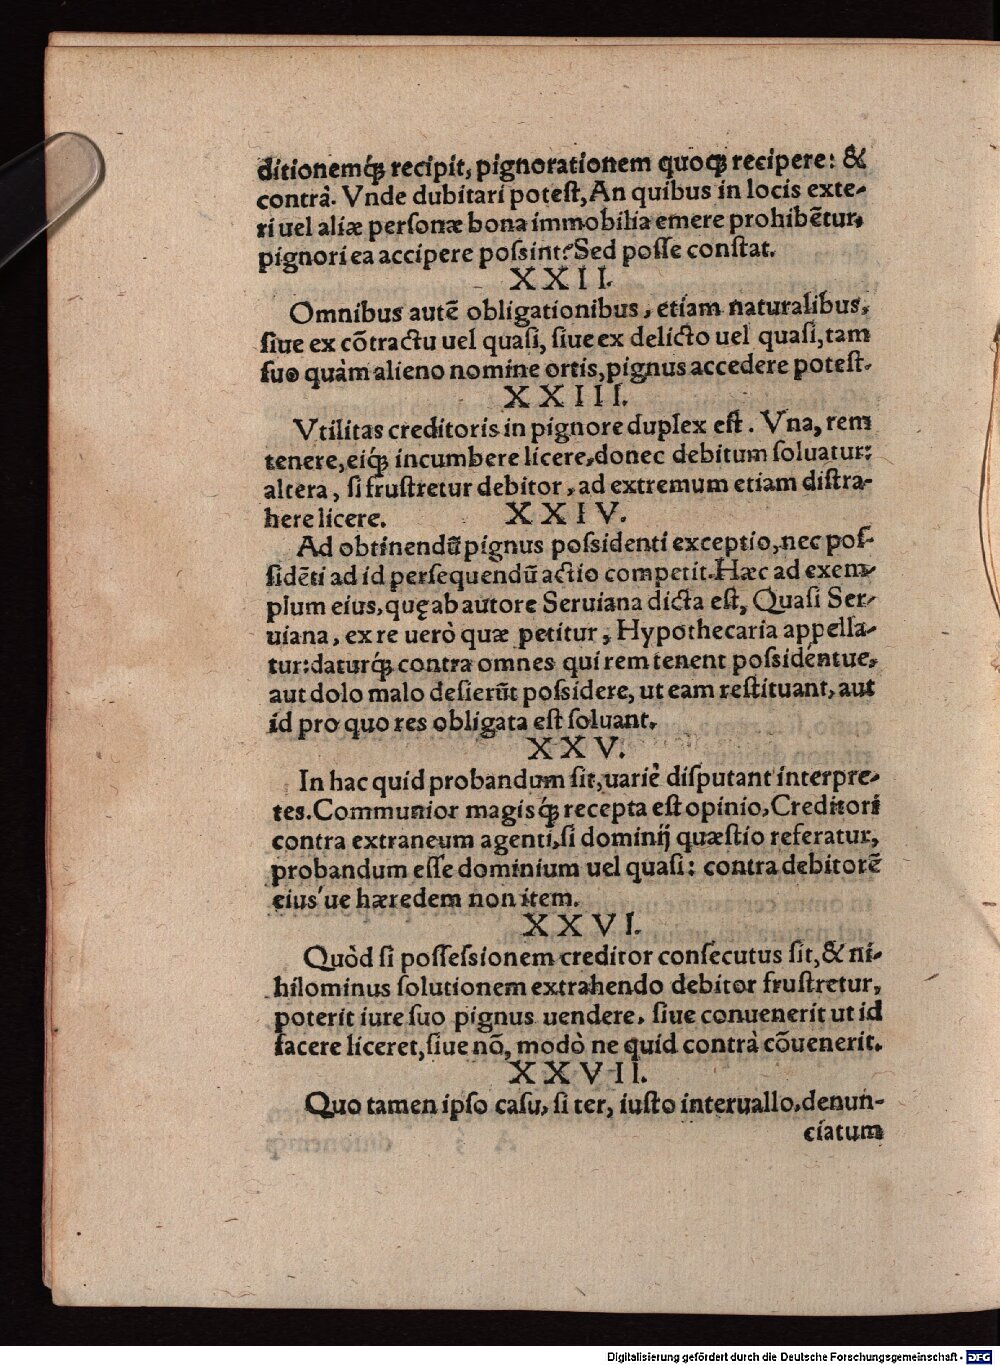 ditionemq́ꝫ recipit, pignorationem quoqꝫ recipere: &
contrà. Vnde dubitari poteſt, An quibus in locis exte-
ri uel aliæ perſonæ bona immobilia emere prohibẽtur,
pignori ea accipere poſsint? Sed poſſe conſtat.
XXII.
Omnibus autẽ obligationibus, etiam naturalibus,
ſiue ex cõtractu uel quaſi, ſiue ex delicto uel quaſi, tam
ſuo quàm alieno nomine ortis, pignus accedere poteſt.
XXIII.
Vtilitas creditoris in pignore duplex eſt. Vna, rem
tenere, eiq́ꝫ incumbere licere, donec debitum ſoluatur:
altera, ſi fruſtretur debitor, ad extremum etiam diſtra-
here licere.
XXIV.
Ad obtinendũ pignus poſsidenti exceptio, nec poſ-
ſidẽti ad id perſequendũ actio competit. Hæc ad exem-
plum eius, quę ab autore Seruiana dicta eſt, Quaſi Ser-
uiana, ex re uerò quæ petitur, Hypothecaria appella-
tur: daturq́ꝫ contra omnes qui rem tenent poſsidéntue,
aut dolo malo deſierũt poſsidere, ut eam reſtituant, aut
id pro quo res obligata eſt ſoluant.
XXV.
In hac quid probandum ſit, uariè diſputant interpre-
tes. Communior magisq́ꝫ recepta eſt opinio, Creditori
contra extraneum agenti, ſi dominij quæſtio referatur,
probandum eſſe dominium uel quaſi: contra debitorẽ
eius´ue hæredem non item.
XXVI.
Quòd ſi poſſeſsionem creditor conſecutus ſit, & ni-
hilominus ſolutionem extrahendo debitor fruſtretur,
poterit iure ſuo pignus uendere, ſiue conuenerit ut id
facere liceret, ſiue nõ, modò ne quid contrà cõuenerit.
XXVII.
Quo tamen ipſo caſu, ſi ter, iuſto interuallo, denun-
ciatum
Digitalisierung gefördert durch die Deutsche Forschungsgemeinschaft - DFG